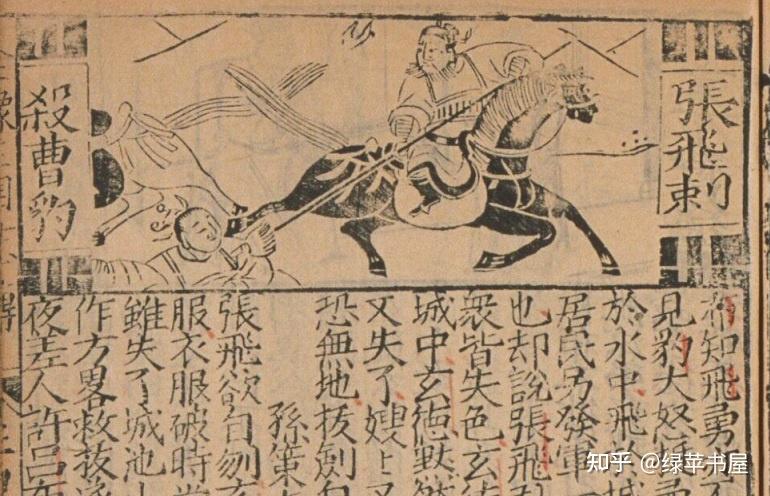 張飛刺
殺曹豹
布知飛勇
見豹大怒
於水中飛
居民乃發軍
也却說張飛
衆皆失色玄
城中玄德默
又失了嫂
恐無地拔劍自
孫策
張飛欲自刎
服衣服破時
雖失了城池
作方畧救
夜差人許呂布
知乎 @绿苹书屋